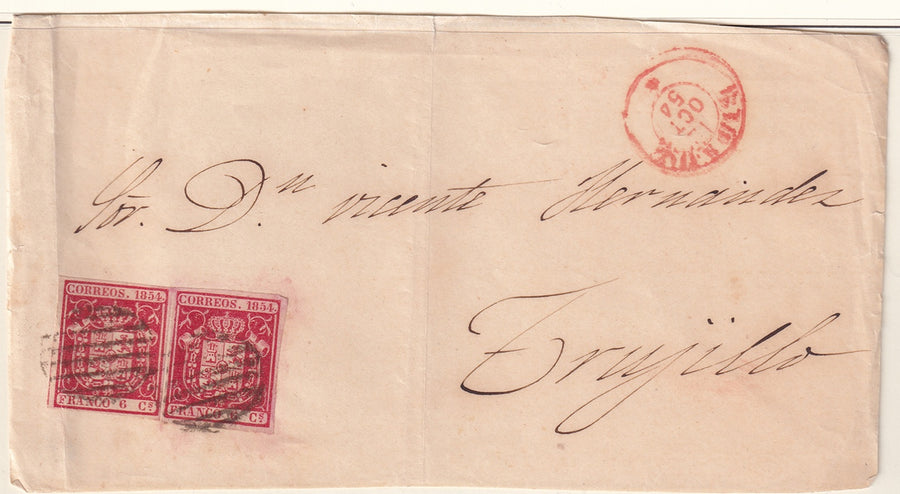 OCT
54
Sor. D.n vicente Hernandez
Trujillo
CORREOS. 1854.
FRANCO 6 Cs
CORREOS. 1854.
FRANCO 6 Cs